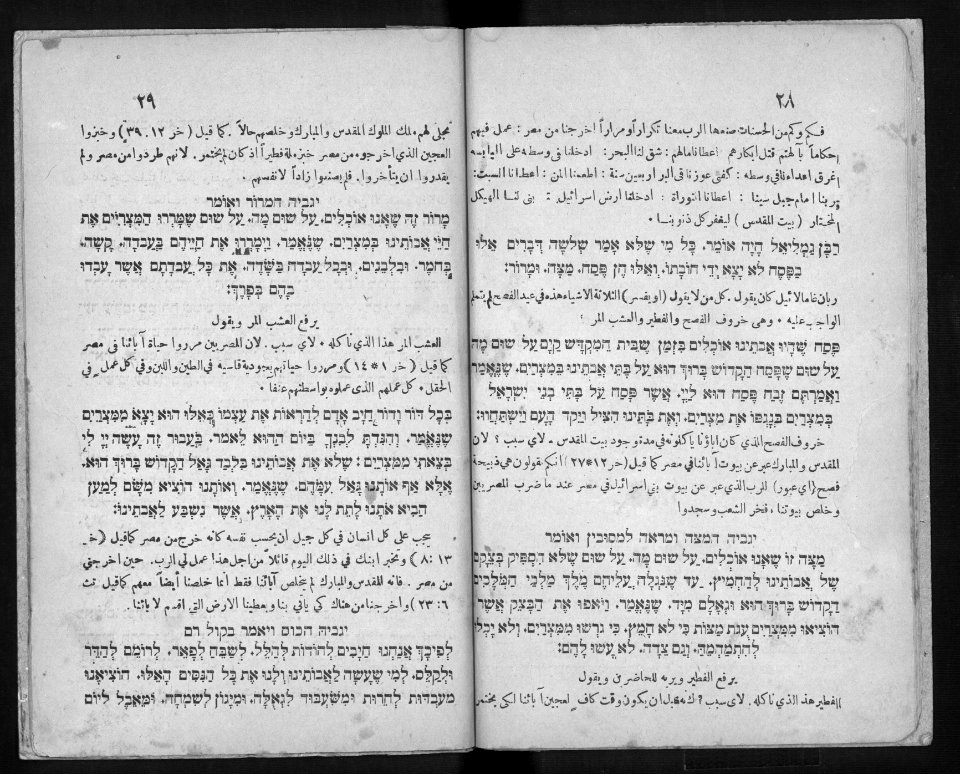 ٢٨
فكم وكم من الحسنات صنعها الرب معنا تكراراً ومراراً اخرجنا من مصر : عمل فيهم
احكاماً بآلهتم قتل ابكارهم اعطانا مالهم : شق لنا البحر : ادخلنا في وسطه على اليابسه
اغرق اعداءنا في وسطه : كفى عوزنا في البر اربعين سنة : اطعمنا المن : اعطانا السبت :
قربنا امام جبل سينا : اعطانا التوراة : ادخلنا ارض اسرائيل : بنى لنا الهيكل
المختار ( بيت المقدس ) ليغفر كل ذنوبنا ٠
רַבָּן גַּמְלִיאֵל הָיָה אוֹמֵר. כָּל מִי שֶׁלֹּא אָמַר שְׁלֹשָׁה דְּבָרִים אֵלּוּ
בַּפֶּסַח לֹא יָצָא יְדֵי חוֹבָתוֹ. וְאֵלּוּ הֶן פֶּסַח. מַצָּה. וּמָרוֹר:
ربان غامالائيل كان يقول . كل من لا يقول ( او يفسر ) الثلاثة الاشياء هذه في عيد الفصح لم يتمم
الواجب عليه ٠ وهى خروف الفصح والفطير والعشب المر
פֶּסַח שֶׁהָיוּ אֲבֹתֵינוּ אוֹכְלִים בִּזְמַן שֶׁבֵּית הַמִּקְדָּשׁ קַיָּם עַל שׁוּם מָה
עַל שׁוּם שֶׁפָּסַח הַקָּדוֹשׁ בָּרוּךְ הוּא עַל בָּתֵּי אֲבֹתֵינוּ בְּמִצְרַיִם. שֶׁנֶּאֱמַר
וַאֲמַרְתֶּם זֶבַח פֶּסַח הוּא לַיְיָ. אֲשֶׁר פָּסַח עַל בָּתֵּי בְנֵי יִשְׂרָאֵל
בְּמִצְרַיִם בְּנָגְפּוֹ אֶת מִצְרַיִם. וְאֶת בָּתֵּינוּ הִצִּיל וַיִּקֹּד הָעָם וַיִּשְׁתַּחֲווּ:
خروف الفصح الذي كان اباؤنا ياكلونه في مدة وجود بيت المقدس - لاي سبب ؟ لان
المقدس والمبارك عبر عن بيوت آبائنا في مصر كما قيل ( خر ١٢*٢٧ ) انكم تقولون هي ذبيحة
فصح ( اي عبور ) للرب الذي عبر عن بيوت بني اسرائيل في مصر عند ما ضرب المصريين
وخلص بيوتنا . فخر الشعب وسجدوا
יגביה המצה ומראה למסובין ואומר
מַצָּה זוֹ שֶׁאָנוּ אוֹכְלִים. עַל שׁוּם מָה. עַל שׁוּם שֶׁלֹּא הִסְפִּיק בְּצֵקָם
שֶׁל אֲבוֹתֵינוּ לְהַחְמִיץ. עַד שֶׁנִּגְלָה עֲלֵיהֶם מֶלֶךְ מַלְכֵי הַמְּלָכִים
הַקָּדוֹשׁ בָּרוּךְ הוּא וּגְאָלָם מִיָּד. שֶׁנֶּאֱמַר. וַיֹּאפוּ אֶת הַבָּצֵק אֲשֶׁר
הוֹצִיאוּ מִמִּצְרַיִם עֻגֹת מַצּוֹת כִּי לֹא חָמֵץ. כִּי גֹרְשׁוּ מִמִּצְרַיִם. וְלֹא יָכְלוּ
לְהִתְמַהְמֵהַּ. וְגַם צֵדָה. לֹא עָשׂוּ לָהֶם:
يرفع الفطير ويره للحاضرين ويقول
الفطير هذا الذي ناكله . لاى سبب ؟ لانه قبل ان يكون وقت كافٍ لعجين آبائنا لكى يختمر
٢٩
تجلى لهم ملك الملوك المقدس والمبارك وخلصهم حالاً . كما قيل ( خر ١٢ . ٣٩ ) وخبزوا
العجين الذي اخرجوه من مصر خبز ملة فطيراً اذ كان لم يختمر . لانهم طردوا من مصر ولم
يقدروا ان يتأخروا . فلم يصنعوا زاداً لانفسهم .
יגביה המרור ואומר
מָרוֹר זֶה שֶׁאָנוּ אוֹכְלִים. עַל שׁוּם מָה. עַל שׁוּם שֶׁמֵּרְרוּ הַמִּצְרִיִּים אֶת
חַיֵּי אֲבוֹתֵינוּ בְּמִצְרַיִם. שֶׁנֶּאֱמַר. וַיְמָרְרוּ אֶת חַיֵּיהֶם בַּעֲבֹדָה. קָשָׁה.
בְּחֹמֶר. וּבִלְבֵנִים. וּבְכָל עֲבֹדָה בַּשָּׂדֶה. אֶת כָּל עֲבֹדָתָם אֲשֶׁר עָבְדוּ
בָהֶם בְּפָרֶךְ:
يرفع العشب المر ويقول
العشب المر هذا الذي ناكله ٠ لاي سبب . لان المصريين مرروا حياة آبائنا في مصر
كما قيل ( خر ١*١٤ ) ومرروا حياتهم بعبودية قاسيه في الطين واللبن وفي كل عمل في
الحقل ٠ كل عملهم الذى عملوه بواسطتهم عنفاً ٠
בְּכָל דּוֹר וָדוֹר חַיָּב אָדָם לְהַרְאוֹת אֶת עַצְמוֹ כְּאִלּוּ הוּא יָצָא מִמִּצְרַיִם
שֶׁנֶּאֱמַר. וְהִגַּדְתָּ לְבִנְךָ בַּיּוֹם הַהוּא לֵאמֹר. בַּעֲבוּר זֶה עָשָׂה יְיָ לִי
בְּצֵאתִי מִמִּצְרָיִם: שֶׁלֹּא אֶת אֲבוֹתֵינוּ בִּלְבַד גָּאַל הַקָּדוֹשׁ בָּרוּךְ הוּא.
אֶלָּא אַף אוֹתָנוּ גָּאַל עִמָּהֶם. שֶׁנֶּאֱמַר. וְאוֹתָנוּ הוֹצִיא מִשָּׁם לְמַעַן
הָבִיא אֹתָנוּ לָתֶת לָנוּ אֶת הָאָרֶץ. אֲשֶׁר נִשְׁבַּע לַאֲבֹתֵינוּ:
يجب على كل انسان في كل جيل ان يحسب نفسه كانه خرج من مصر كما قيل ( خر
١٣ : ٨ ) وتخبر ابنك في ذلك اليوم قائلاً من اجل هذا عمل لي الرب . حين اخرجني
من مصر . فانه المقدس والمبارك لم يخلص آبائنا فقط انما خلصنا أيضاً معهم كما قيل تث
٦ : ٢٣ ) واخرجنا من هناك كي ياتي بنا ويعطينا الارض التي اقسم لابائنا .
יגביה הכוס ויאמר בקול רם
לְפִיכָךְ אֲנַחְנוּ חַיָּבִים לְהוֹדוֹת לְהַלֵּל. לְשַׁבֵּחַ לְפָאֵר. לְרוֹמֵם לְהַדֵּר
וּלְקַלֵּס. לְמִי שֶׁעָשָׂה לַאֲבוֹתֵינוּ וְלָנוּ אֶת כָּל הַנִּסִּים הָאֵלּוּ. הוֹצִיאָנוּ
מֵעַבְדוּת לְחֵרוּת וּמִשִּׁעְבּוּד לִגְאֻלָּה. וּמִיָּגוֹן לְשִׂמְחָה. וּמֵאֵבֶל לְיוֹם